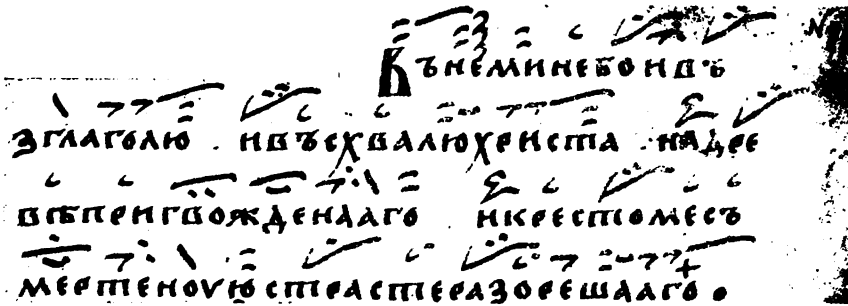 Вънеминебоивъ
зглаголю . ивъсхвалюхриста . надре
вѣпригвожденааго икрестомесъ
мертеноуюстрастеразорешааго .